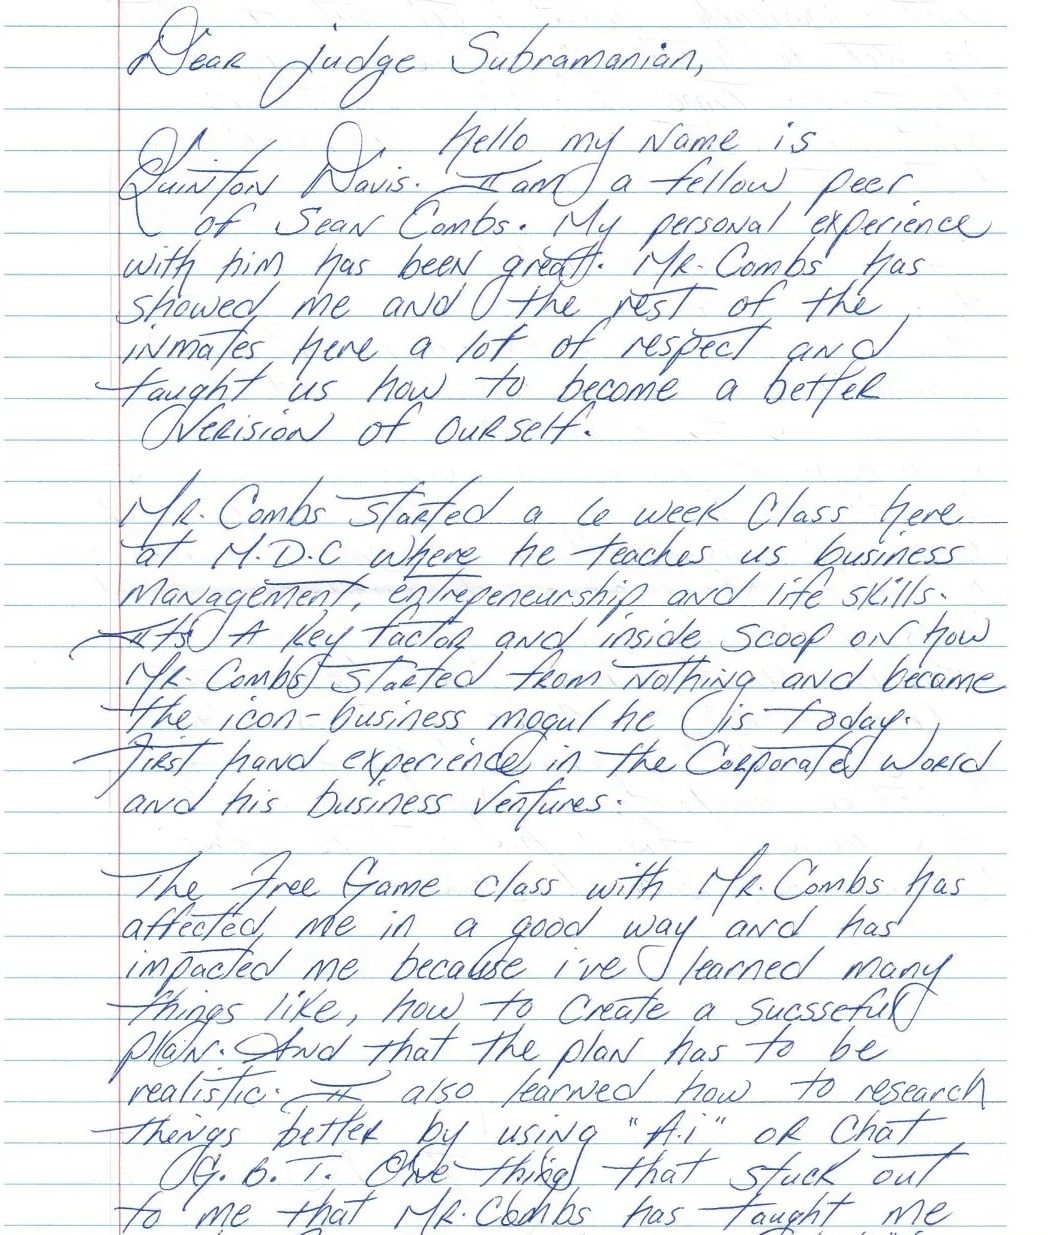 Dear Judge Subramanian,
Hello my Name is
Quinton Davis. I am a fellow peer
of Sean Combs. My personal experience
with him has been great. Mr. Combs has
showed me and the rest of the
inmates here a lot of respect and
taught us how to become a better
Verision of ourself.
Mr. Combs started a 6 week Class here
at M.D.C where he teaches us business
management, entrepeneurship and life skills.
Its A Key factor and inside scoop on how
Mr. Combs started from nothing and became
the icon-business mogul he is today.
First hand experience in the Corporated World
and his business Ventures.
The Free Game class with Mr. Combs has
affected me in a good way and has
impacted me because i've learned many
things like, how to create a sucsseful
plan. And that the plan has to be
realistic. I also learned how to research
things better by using "A.i" or Chat
G.B.T. One thing that stuck out
to me that Mr. Combs has taught me